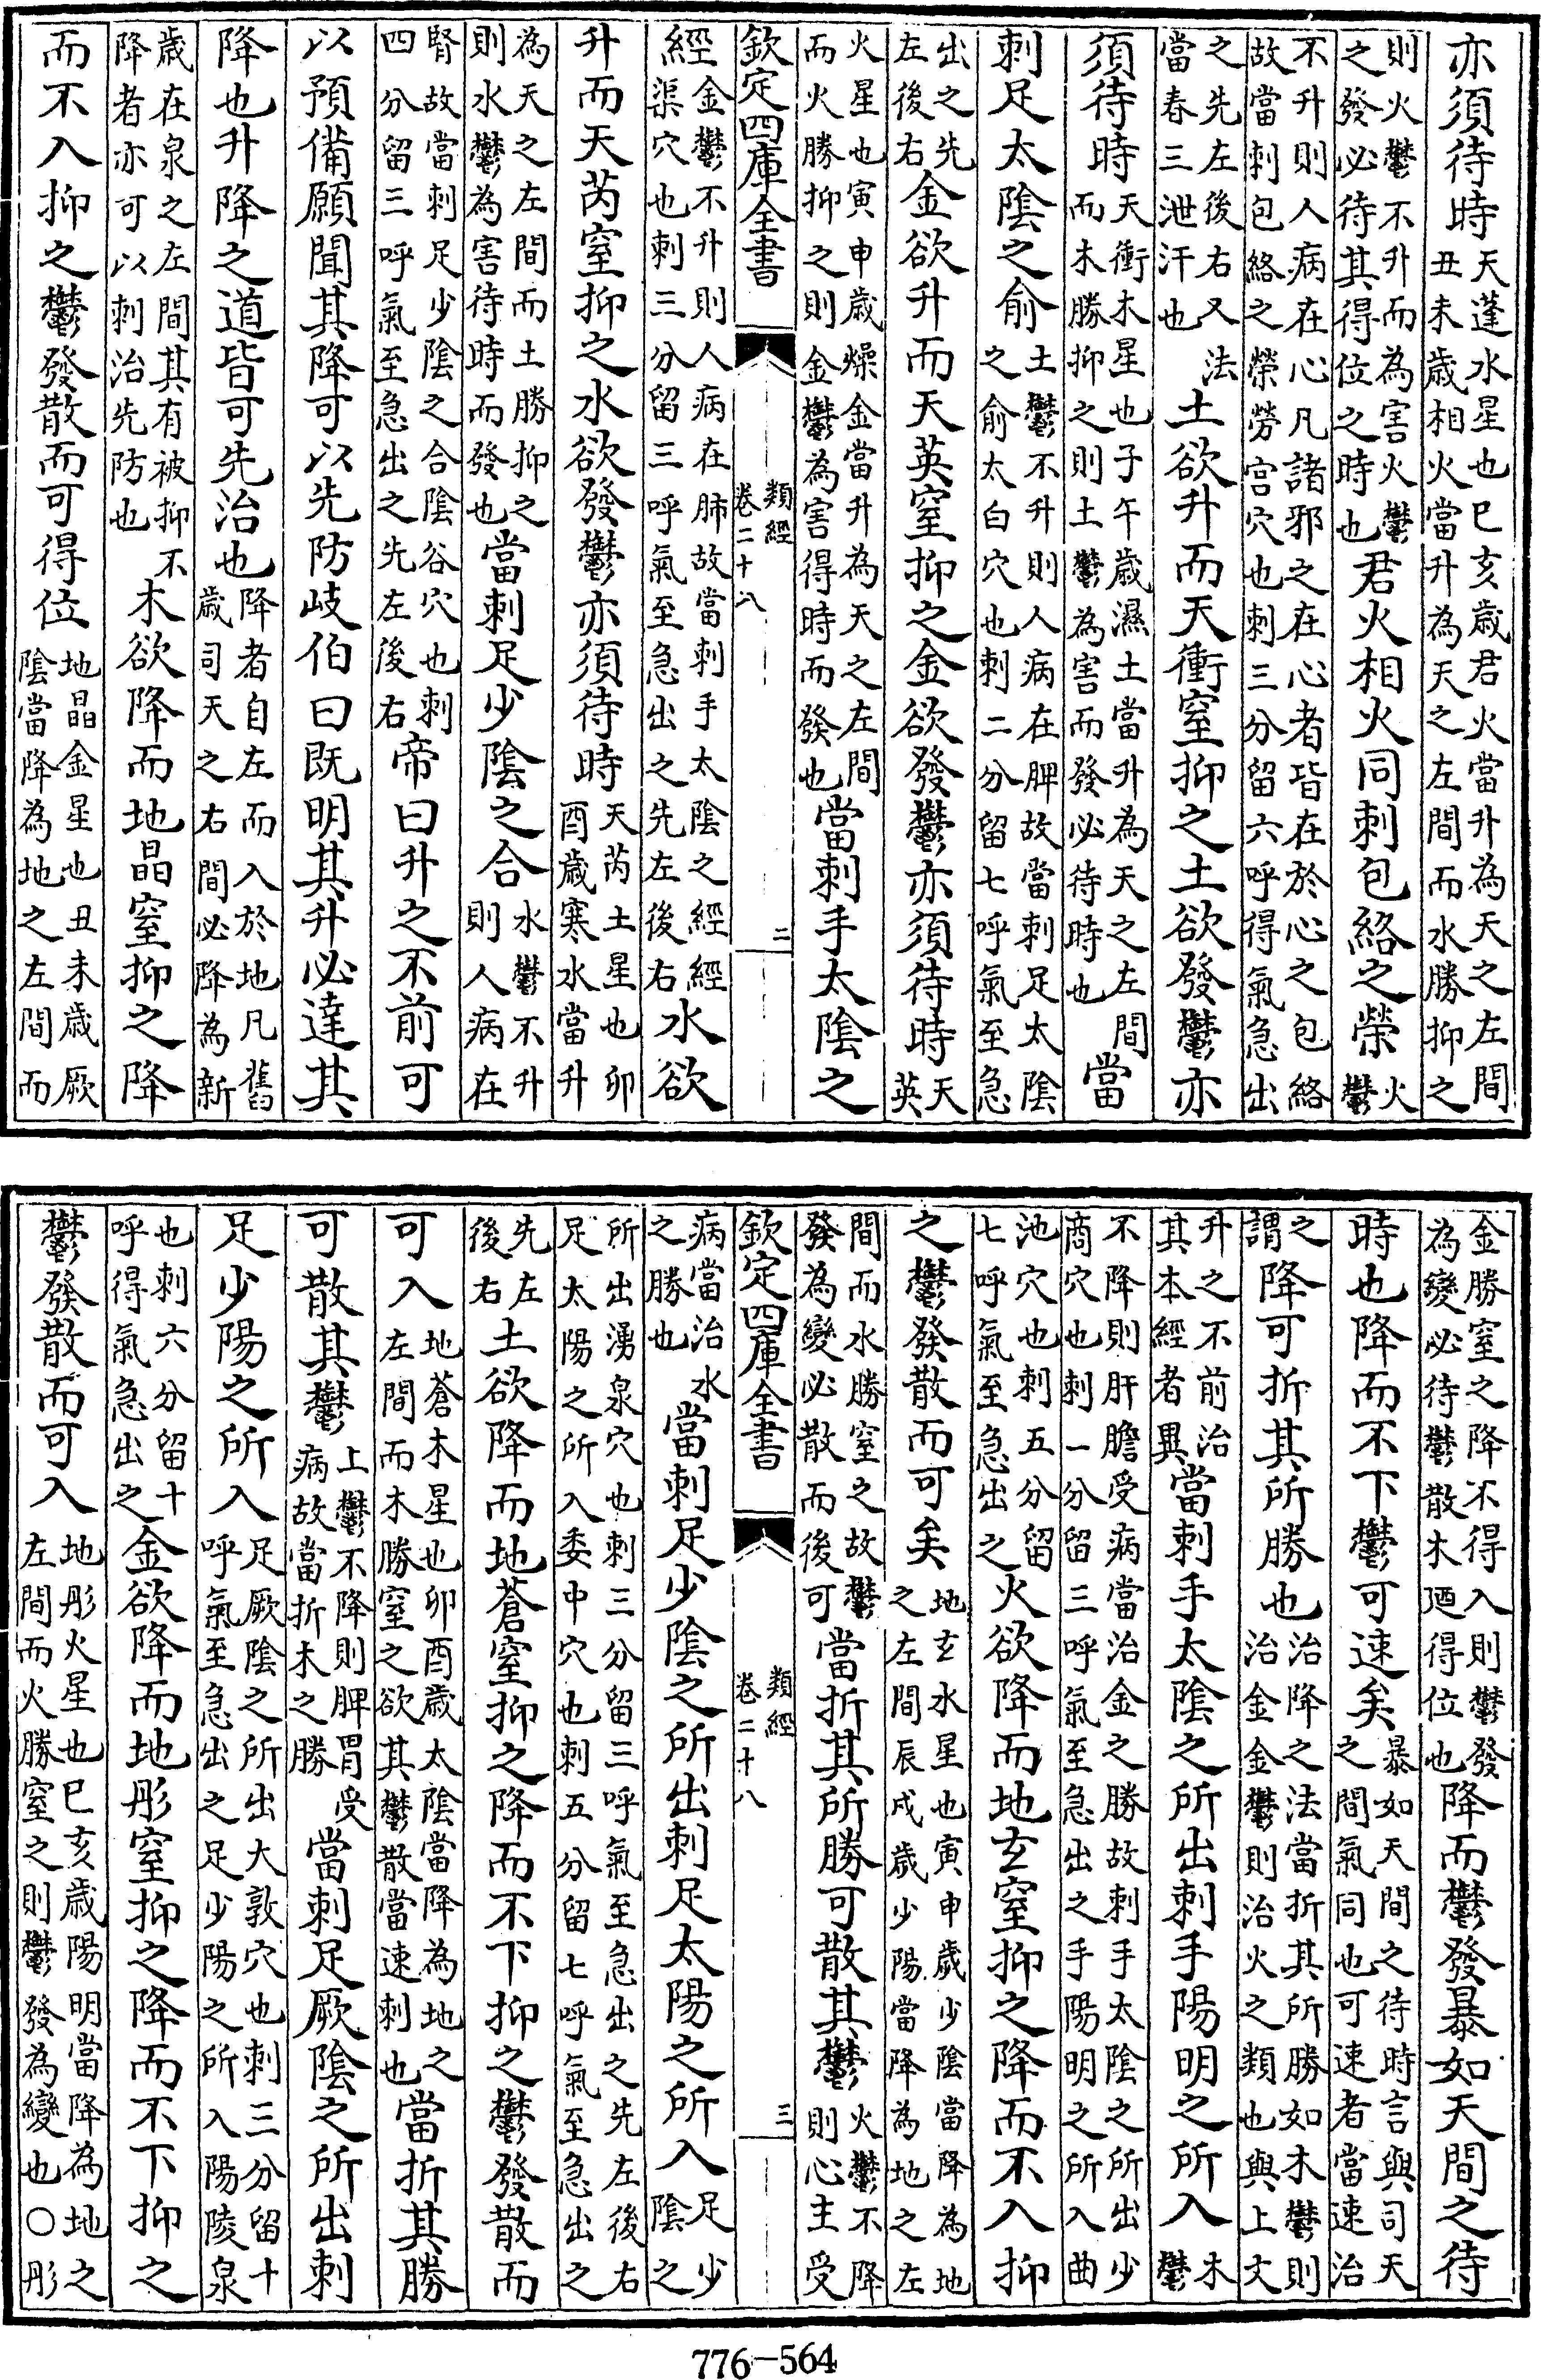 亦須待時天蓬水星也巳亥歲君火當升為天之左間丑未歲相火當升為天之左間而水勝抑之
則火鬱不升而為害火鬱之發必待其得位之時也君火相火同刺包絡之榮火鬱
不升則人病在心凡諸邪之在心者皆在於心之包絡故當刺包絡之榮勞宮穴也刺三分留六呼得氣急出
之先左後右又法當春三泄汗也土欲升而天衝窒抑之土欲發鬱亦
須待時天衝木星也子午歲濕土當升為天之左間而木勝抑之則土鬱為害而發必待時也當
刺足太隂之俞土鬱不升則人病在脾故當刺足太隂之俞太白穴也刺二分留七呼氣至急
出之先左後右金欲升而天英窒抑之金欲發鬱亦須待時天英
火星也寅申歲燥金當升為天之左間而火勝抑之則金鬱為害得時而發也當刺手太隂之
欽定四庫全書 類經 卷二十八 二
經金鬱不升則人病在肺故當刺手太隂之經經渠穴也刺三分留三呼氣至急出之先左後右水欲
升而天芮窒抑之水欲發鬱亦須待時天芮土星也卯酉歲寒水當升
為天之左間而土勝抑之則水鬱為害待時而發也當刺足少隂之合水鬱不升則人病在
腎故當刺足少隂之合隂谷穴也刺四分留三呼氣至急出之先左後右帝曰升之不前可
以預備願聞其降可以先防岐伯曰既明其升必達其
降也升降之道皆可先治也降者自左而入於地凡舊歲司天之右間必降為新
歲在泉之左間其有被抑不降者亦可以刺治先防也木欲降而地晶窒抑之降
而不入抑之鬱發散而可得位地晶金星也丑未歲厥隂當降為地之左間而
金勝窒之降不得入則鬱發為變必待鬱散木迺得位也降而鬱發暴如天間之待
時也降而不下鬱可速矣暴如天間之待時言與司天之間氣同也可速者當速治
之謂降可折其所勝也治降之法當折其所勝如木鬱則治金金鬱則治火之類也與上文
升之不前治其本經者異當刺手太隂之所出刺手陽明之所入木鬱
不降則肝膽受病當治金之勝故刺手太隂之所出少商穴也刺一分留三呼氣至急出之手陽明之所入曲
池穴也刺五分留七呼氣至急出之火欲降而地玄窒抑之降而不入抑
之鬱發散而可矣地玄水星也寅申歲少隂當降為地之左間辰戌歲少陽當降為地之左
間而水勝窒之故鬱發為變必散而後可當折其所勝可散其鬱火鬱不降則心主受
欽定四庫全書 類經 卷二十八 三
病當治水之勝也當刺足少隂之所出刺足太陽之所入足少隂之
所出湧泉穴也刺三分留三呼氣至急出之先左後右足太陽之所入委中穴也刺五分留七呼氣至急出之
先左後右土欲降而地蒼窒抑之降而不下抑之鬱發散而
可入地蒼木星也卯酉歲太隂當降為地之左間而木勝窒之欲其鬱散當速刺也當折其勝
可散其鬱上鬱不降則脾胃受病故當折木之勝當刺足厥隂之所出刺
足少陽之所入足厥隂之所出大敦穴也刺三分留十呼氣至急出之足少陽之所入陽陵泉
也刺六分留十呼得氣急出之金欲降而地彤窒抑之降而不下抑之
鬱發散而可入地彤火星也巳亥歲陽明當降為地之左間而火勝窒之則鬱發為變也○彤
776-564